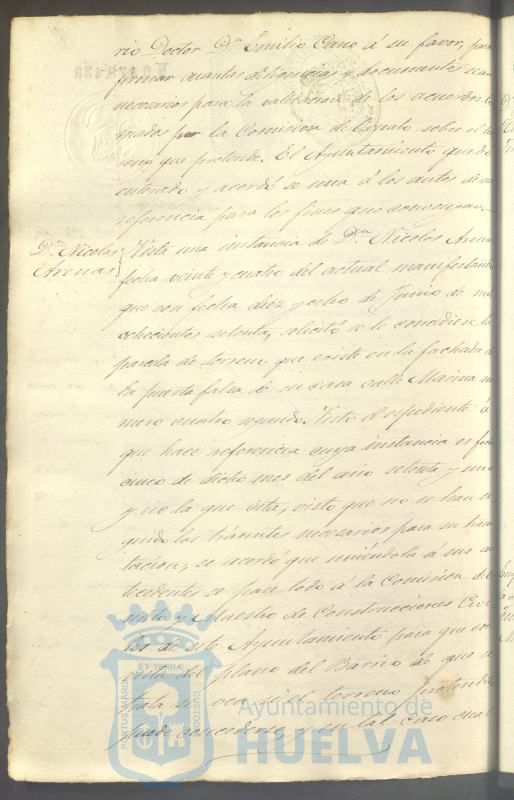 rio Doctor Dn. Emilio Cano á su favor, para
firmar cuantas diligencias y documentos sean
necesarios para la validacion de los acuerdos to
mados por la Comision de Ornato sobre el ter
reno que pretende. El Ayuntamiento quedó
enterado y acordó se una á los autos de su
referencia para los fines que convengan.
Dn. Nicolas
Arenas
Vista una instancia de Dn. Nicolas Arenas
fecha veinte y cuatro del actual manifestando
que con fecha diez y ocho de Junio de mil
ochocientos setenta, solicitó se le concediese la
parcela de terreno que existe en la fachada de
la puerta falsa de su casa calle Marina nu
mero cuatro segundo. Visto el espediente á
que hace referencia cuya instancia es fecha
cinco de dicho mes del año setenta y uno
y no la que cita, visto que no se han se
guido los trámites necesarios para su trami
tacion, se acordó que uniéndola á sus an
tecedentes se pase todo á la Comision de
Ornato y Maestro de Construcciones Civi
les de este Ayuntamiento para que en
vista del plano del Barrio de que se
trata se vea si el terreno pretendido
puede concederse, y en tal caso cual
ET TERRAE
PORTUS MARIS
CUSTODIA
Ayuntamiento de
HUELVA